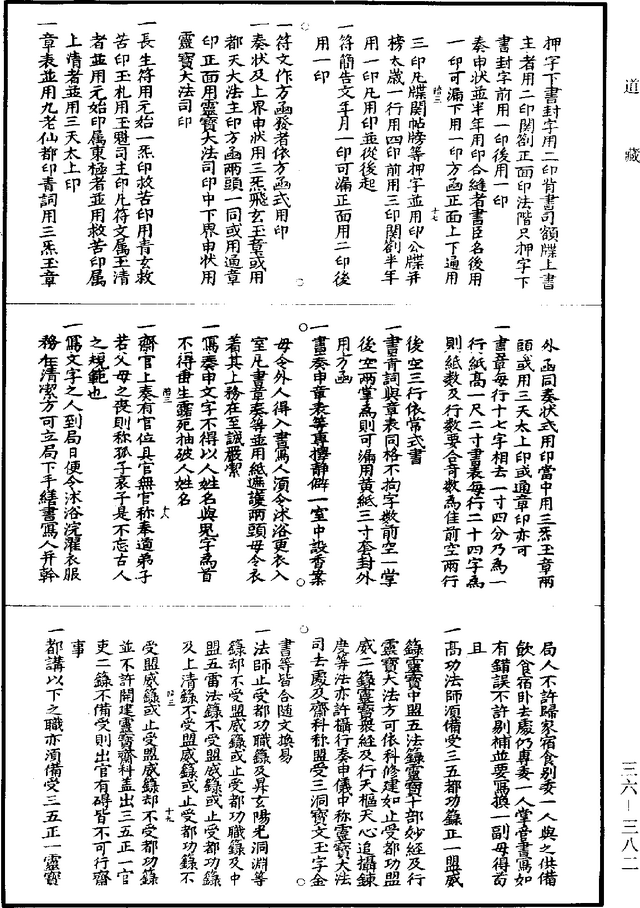 道藏
押字下書封字用二印背書司額牒上書
主者用二印関劄正面印法階只押字下
書封字前用一印後用一印
奏申狀並半年用印合縫者書臣名後用
一印可漏下用一印方函正面上下通用
三印凡牒関帖牓等押字並用印公牒并
榜太歲一行用四印前用三印関劄半年
用一印凡用印並從後起
一符簡告文年月一印可漏正面用二印後
用一印
一符文作方函發者依方函式用印
一奏狀及上界申狀用三炁飛玄玉章或用
都天大法主印方函兩頭一同或用通章
印正面用靈寶大法司印中下界申狀用
靈寶大法司印
一長生符用元始一炁印救苦印用青玄救
苦印玉札用玉蹕司主印凡符文属玉清
者並用元始印属東極者並用救苦印属
上清者並用三天太上印
一章表並用九老仙都印青詞用三炁玉章
外函同奏狀式用印當中用三炁玉章兩
頭或用三天太上印或通章印亦可
一書章每行十七字相去一寸四分乃為一
行紙高一尺二寸書表每行二十四字為
則紙數及行數要合奇數為佳前空兩行
後空三行依常式書
一書青詞與章表同格不拘字數前空一掌
後空兩掌為則可漏用黄紙三寸套封外
用方函
一書奏申章表等專擇静僻一室中設香案
毋令外人得入書寫人須令沐浴更衣入
室凡書章奏等並用紙遮護兩頭毋令衣
著其上務在至誠嚴潔
一寫奏申文字不得以人姓名與鬼字為首
不得番生露死抽破人姓名
一齋官上奏有官位具官無官称奉道弟子
若父母之喪則称孤子哀子是不忘古人
之規範也
一寫文字之人到局日便令沐浴浣濯衣服
務在清潔方可立局下手繕書寫人并幹
局人不許歸家宿食别委一人與之供備
飲食宿卧去處仍專委一人掌管書寫如
有錯誤不許剔補並要寫換一副毋得苟
且
一高功法師須備受三五都功籙正一盟威
籙靈寶中盟五法籙靈寶十部妙經及行
靈寶大法方可依科修建如止受都功盟
威二籙靈寶衆經及行天樞天心追攝鍊
度等法亦許攝行奏申儀中称靈寶大法
司去處及齋科称盟受三洞寶文玉字金
書等皆合随文換易
一法師止受都功職籙及昇玄陽光洞淵等
籙却不受盟威籙或止受都功職籙及中
盟五雷法籙不受盟威籙或止受都功籙
及上清籙不受盟威籙或止受都功籙不
受盟威籙或止受盟威籙却不受都功籙
並不許開建靈寶齋科盖出三五正一官
吏二籙不備受則出官有碍皆不可行齋
事
一都講以下之職亦須備受三五正一靈寶
三六—三八二